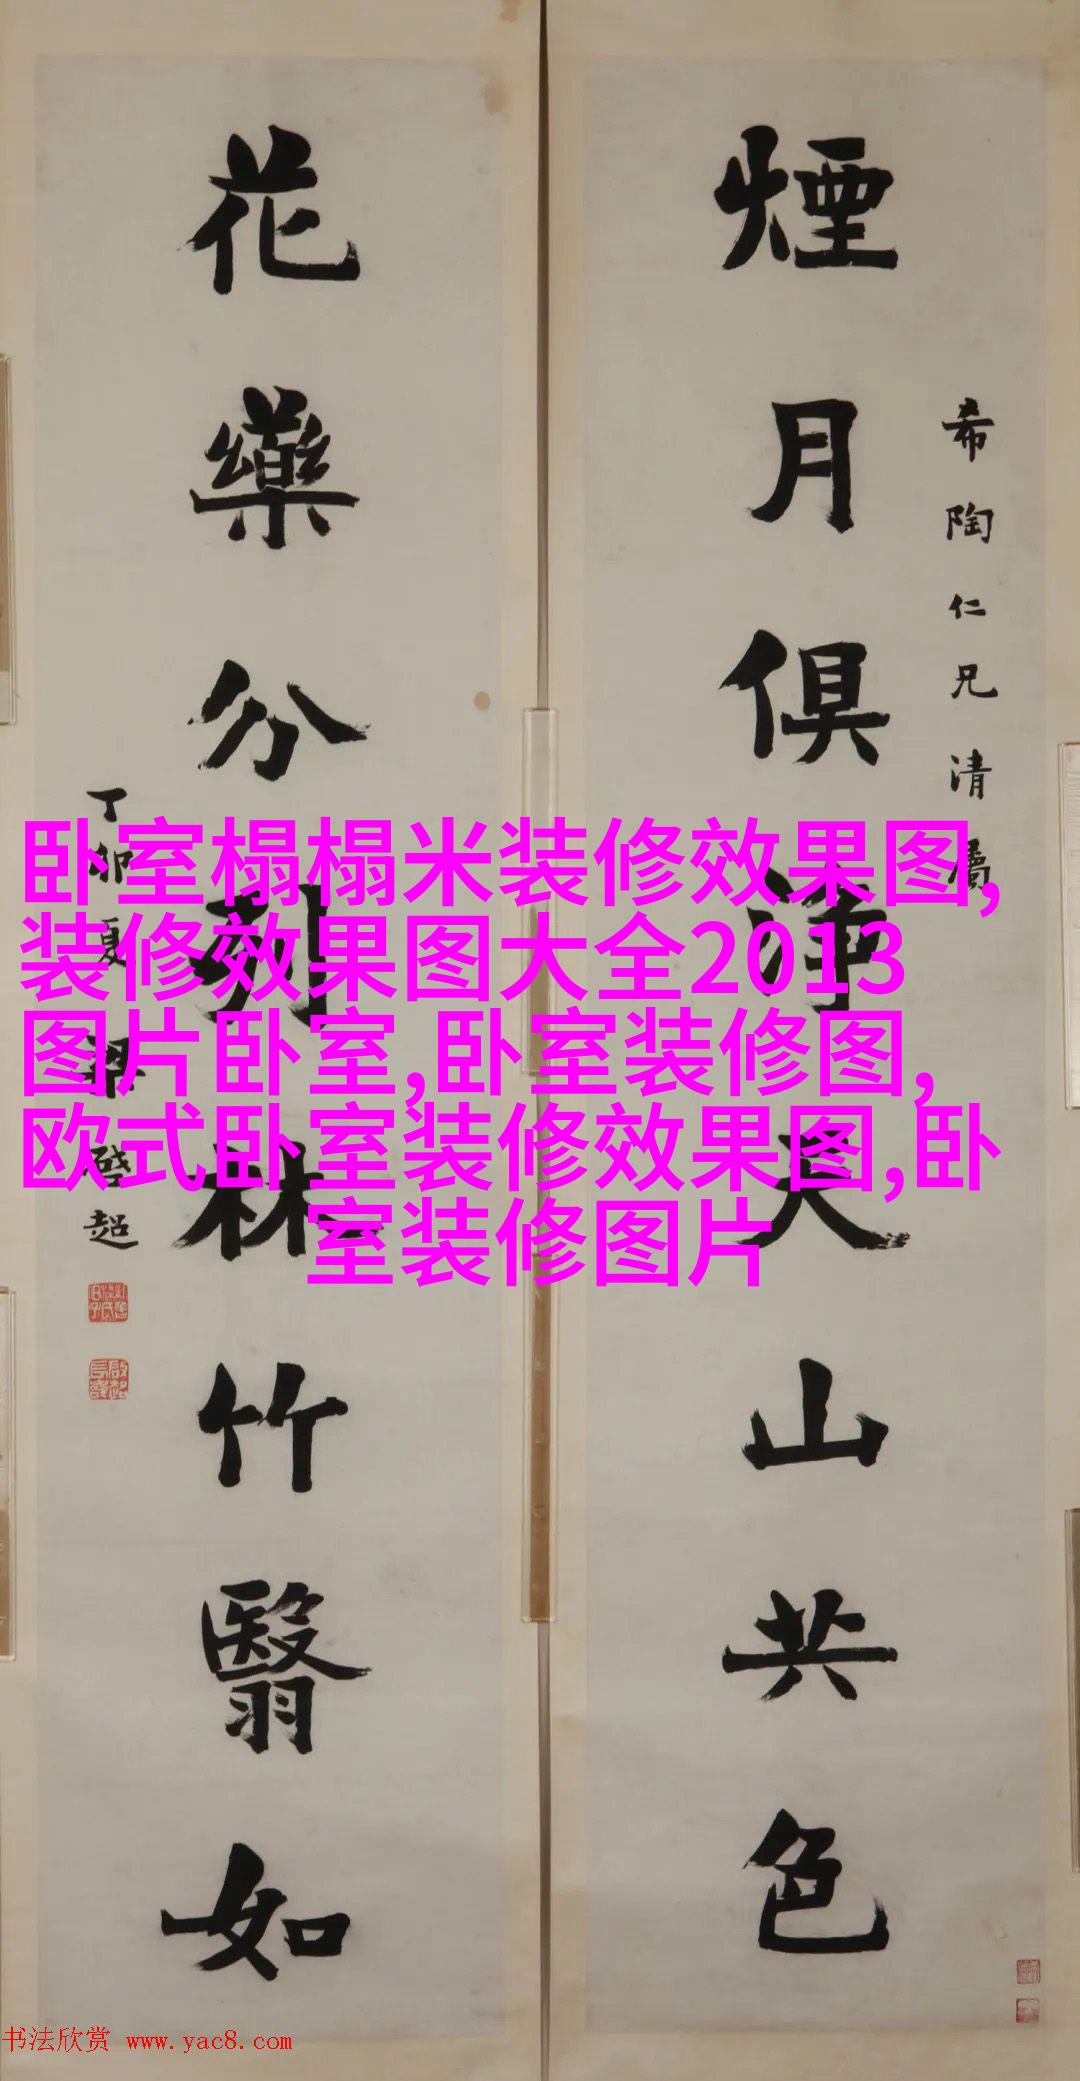 希陶仁兄清屬
煙月俱淨天山共色
花藥分列林竹翳如
丁卯夏梁啓超
卧室榻榻米装修效果图,
装修效果图大全2013
图片卧室,卧室装修图,
欧式卧室装修效果图,卧
室装修图片
书法欣赏 www.yac8.com